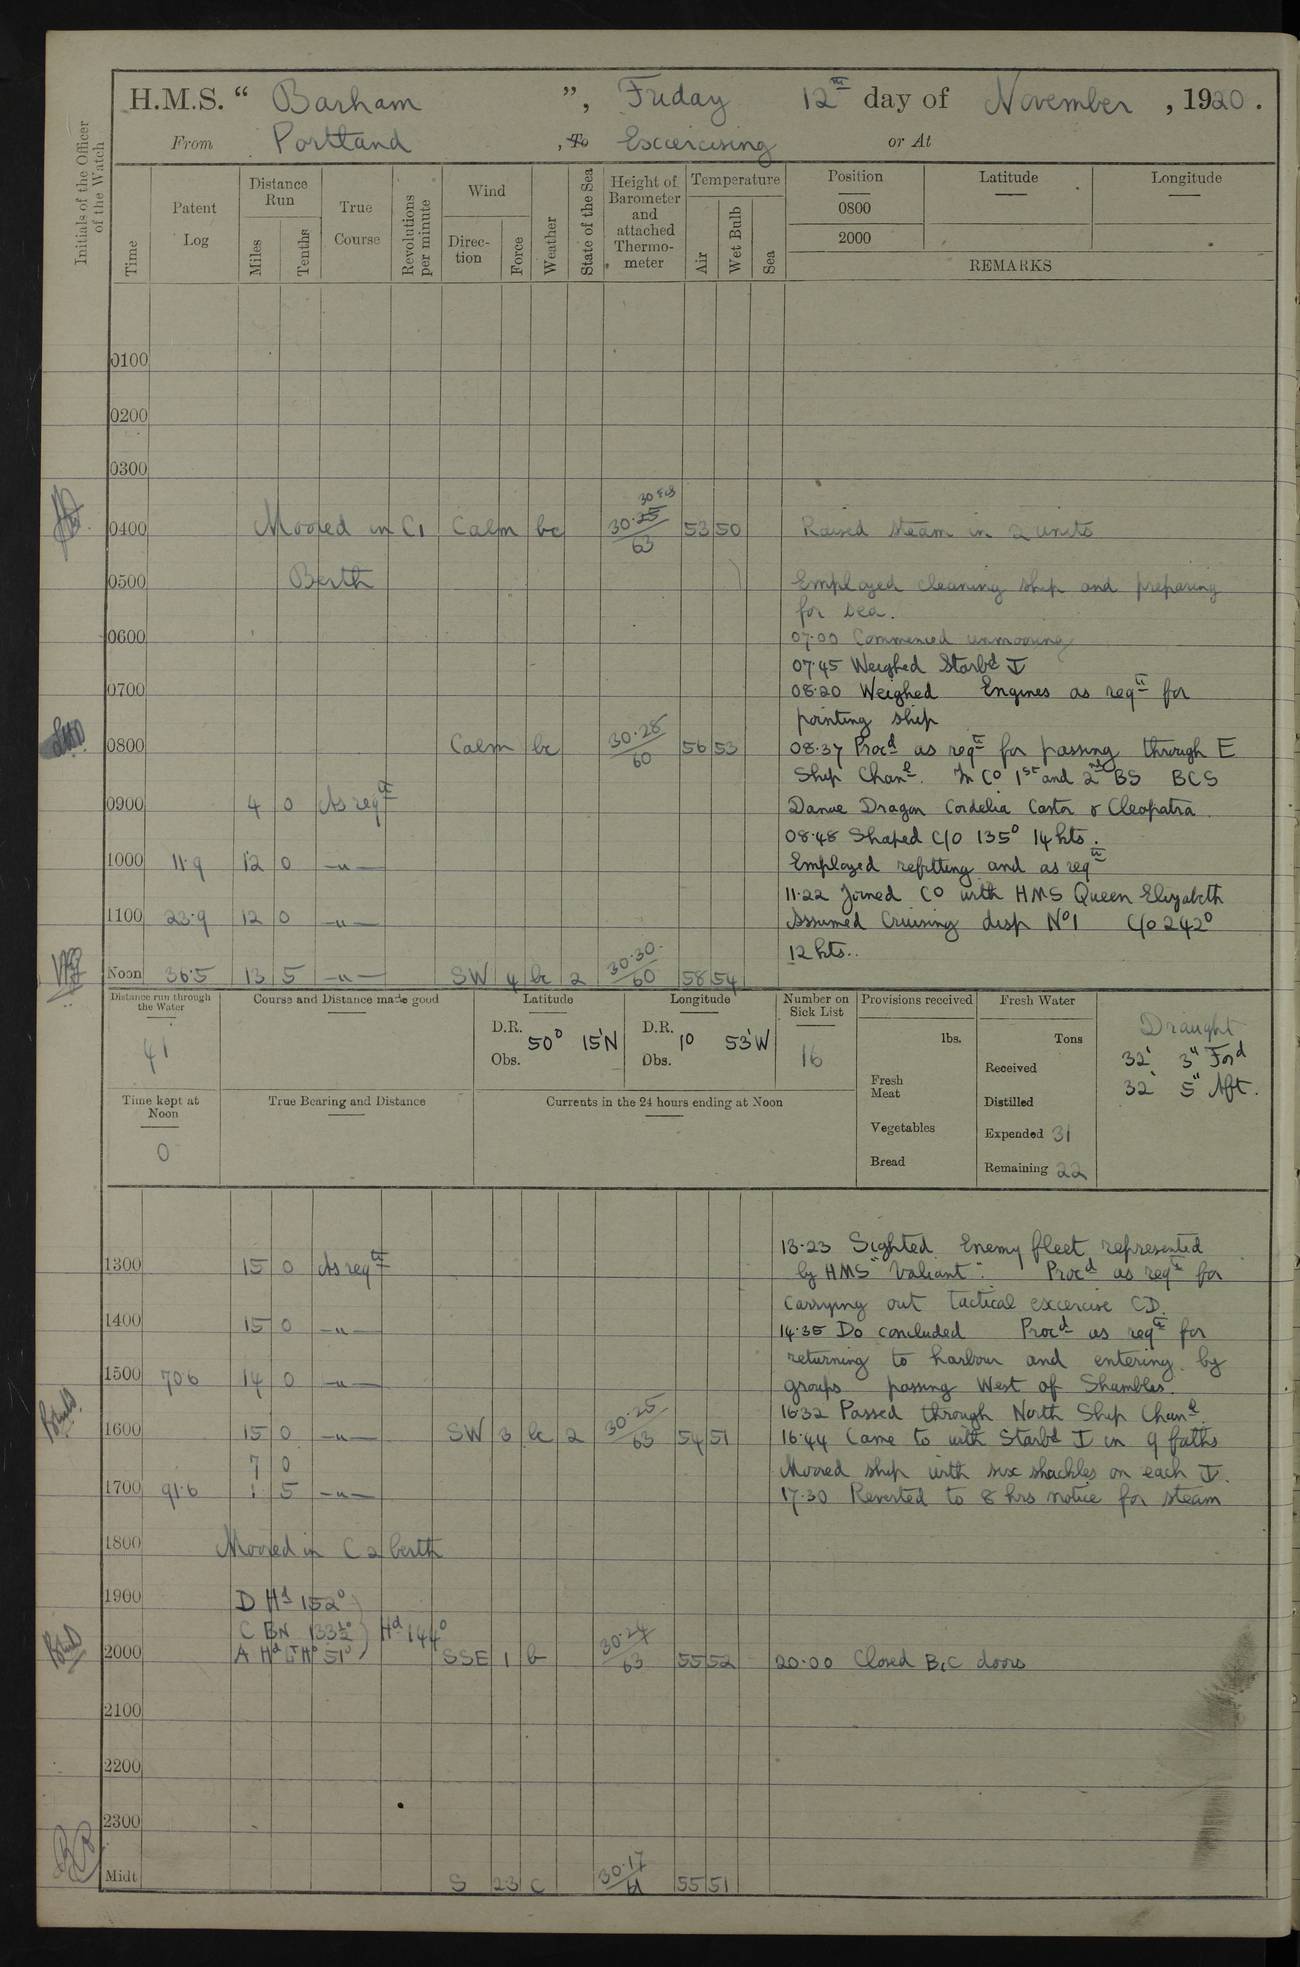 H.M.S. “ Barham ”, Friday 12th day of November , 1920 .
From Portland , To Excercising or At
Initials of the Officer of the Watch
Time
Patent Log
Distance Run
Miles
Tenths
True Course
Revolutions per minute
Wind
Direc-tion
Force
Weather
State of the Sea
Height of Barometer and attached Thermo-meter
Temperature
Air
Wet Bulb
Sea
Position
0800
2000
Latitude
Longitude
REMARKS
0100
0200
0300
0400 Moored in C1 Calm bc 30.25 63 53 50 Raised steam in 2 units
0500 Berth Employed cleaning ship and preparing
for sea.
0600 07.00 Commenced unmooring
07.45 Weighed Starbd
0700 08.20 Weighed Engines as reqte for
pointing ship
0800 Calm bc 30.28 60 56 53 08.37 Procd as reqte for passing through E
Ship Chanl. In Co 1st and 2nd BS BCS
0900 4 0 As reqte Danae Dragon Cordelia Castor & Cleopatra
08.48 Shaped C/o 135° 14 kts.
1000 11.9 12 0 -"- Employed refitting and as reqte
11.22 Joined Co with HMS Queen Elizabeth
1100 23.9 12 0 -"- Assumed Cruising disp No 1 C/o 242°
12 kts..
Noon 36.5 13 5 -"- SW 4 bc 2 30.30 60 58 54
Distance run through the Water
41
Course and Distance made good
Latitude
D.R. 50° 15'N
Obs.
Longitude
D.R. 1° 53'W
Obs.
Number on Sick List
16
Provisions received
lbs.
Fresh Meat
Vegetables
Bread
Fresh Water
Tons
Received
Distilled
Expended 31
Remaining 22
Draught
32' 3" Ford
32' 5" Aft.
Time kept at Noon
0
True Bearing and Distance
Currents in the 24 hours ending at Noon
13.23 Sighted Enemy fleet represented
1300 15 0 As reqte by HMS "Valiant". Procd as reqte for
carrying out tactical excercise CD.
1400 15 0 -"- 14.35 Do concluded Procd as reqte for
returning to harbour and entering by
1500 70.6 14 0 -"- groups passing West of Shambles.
1632 Passed through North Ship Chanl.
1600 15 0 -"- SW 3 bc 2 30.25 63 54 51 16.44 Came to with Starbd in 9 faths
7 0 Moored ship with six shackles on each
1700 91.6 1 5 -"- 17.30 Reverted to 8 hrs notice for steam
1800 Moored in C2 berth
1900 D Hd 152°
C BN 133½° Hd 144°
2000 A Hd LT Ho 51° SSE 1 b 30.24 63 55 52 20.00 Closed B,C doors
2100
2200
2300
Midt. S 2.3 c 30.17 61 55 51